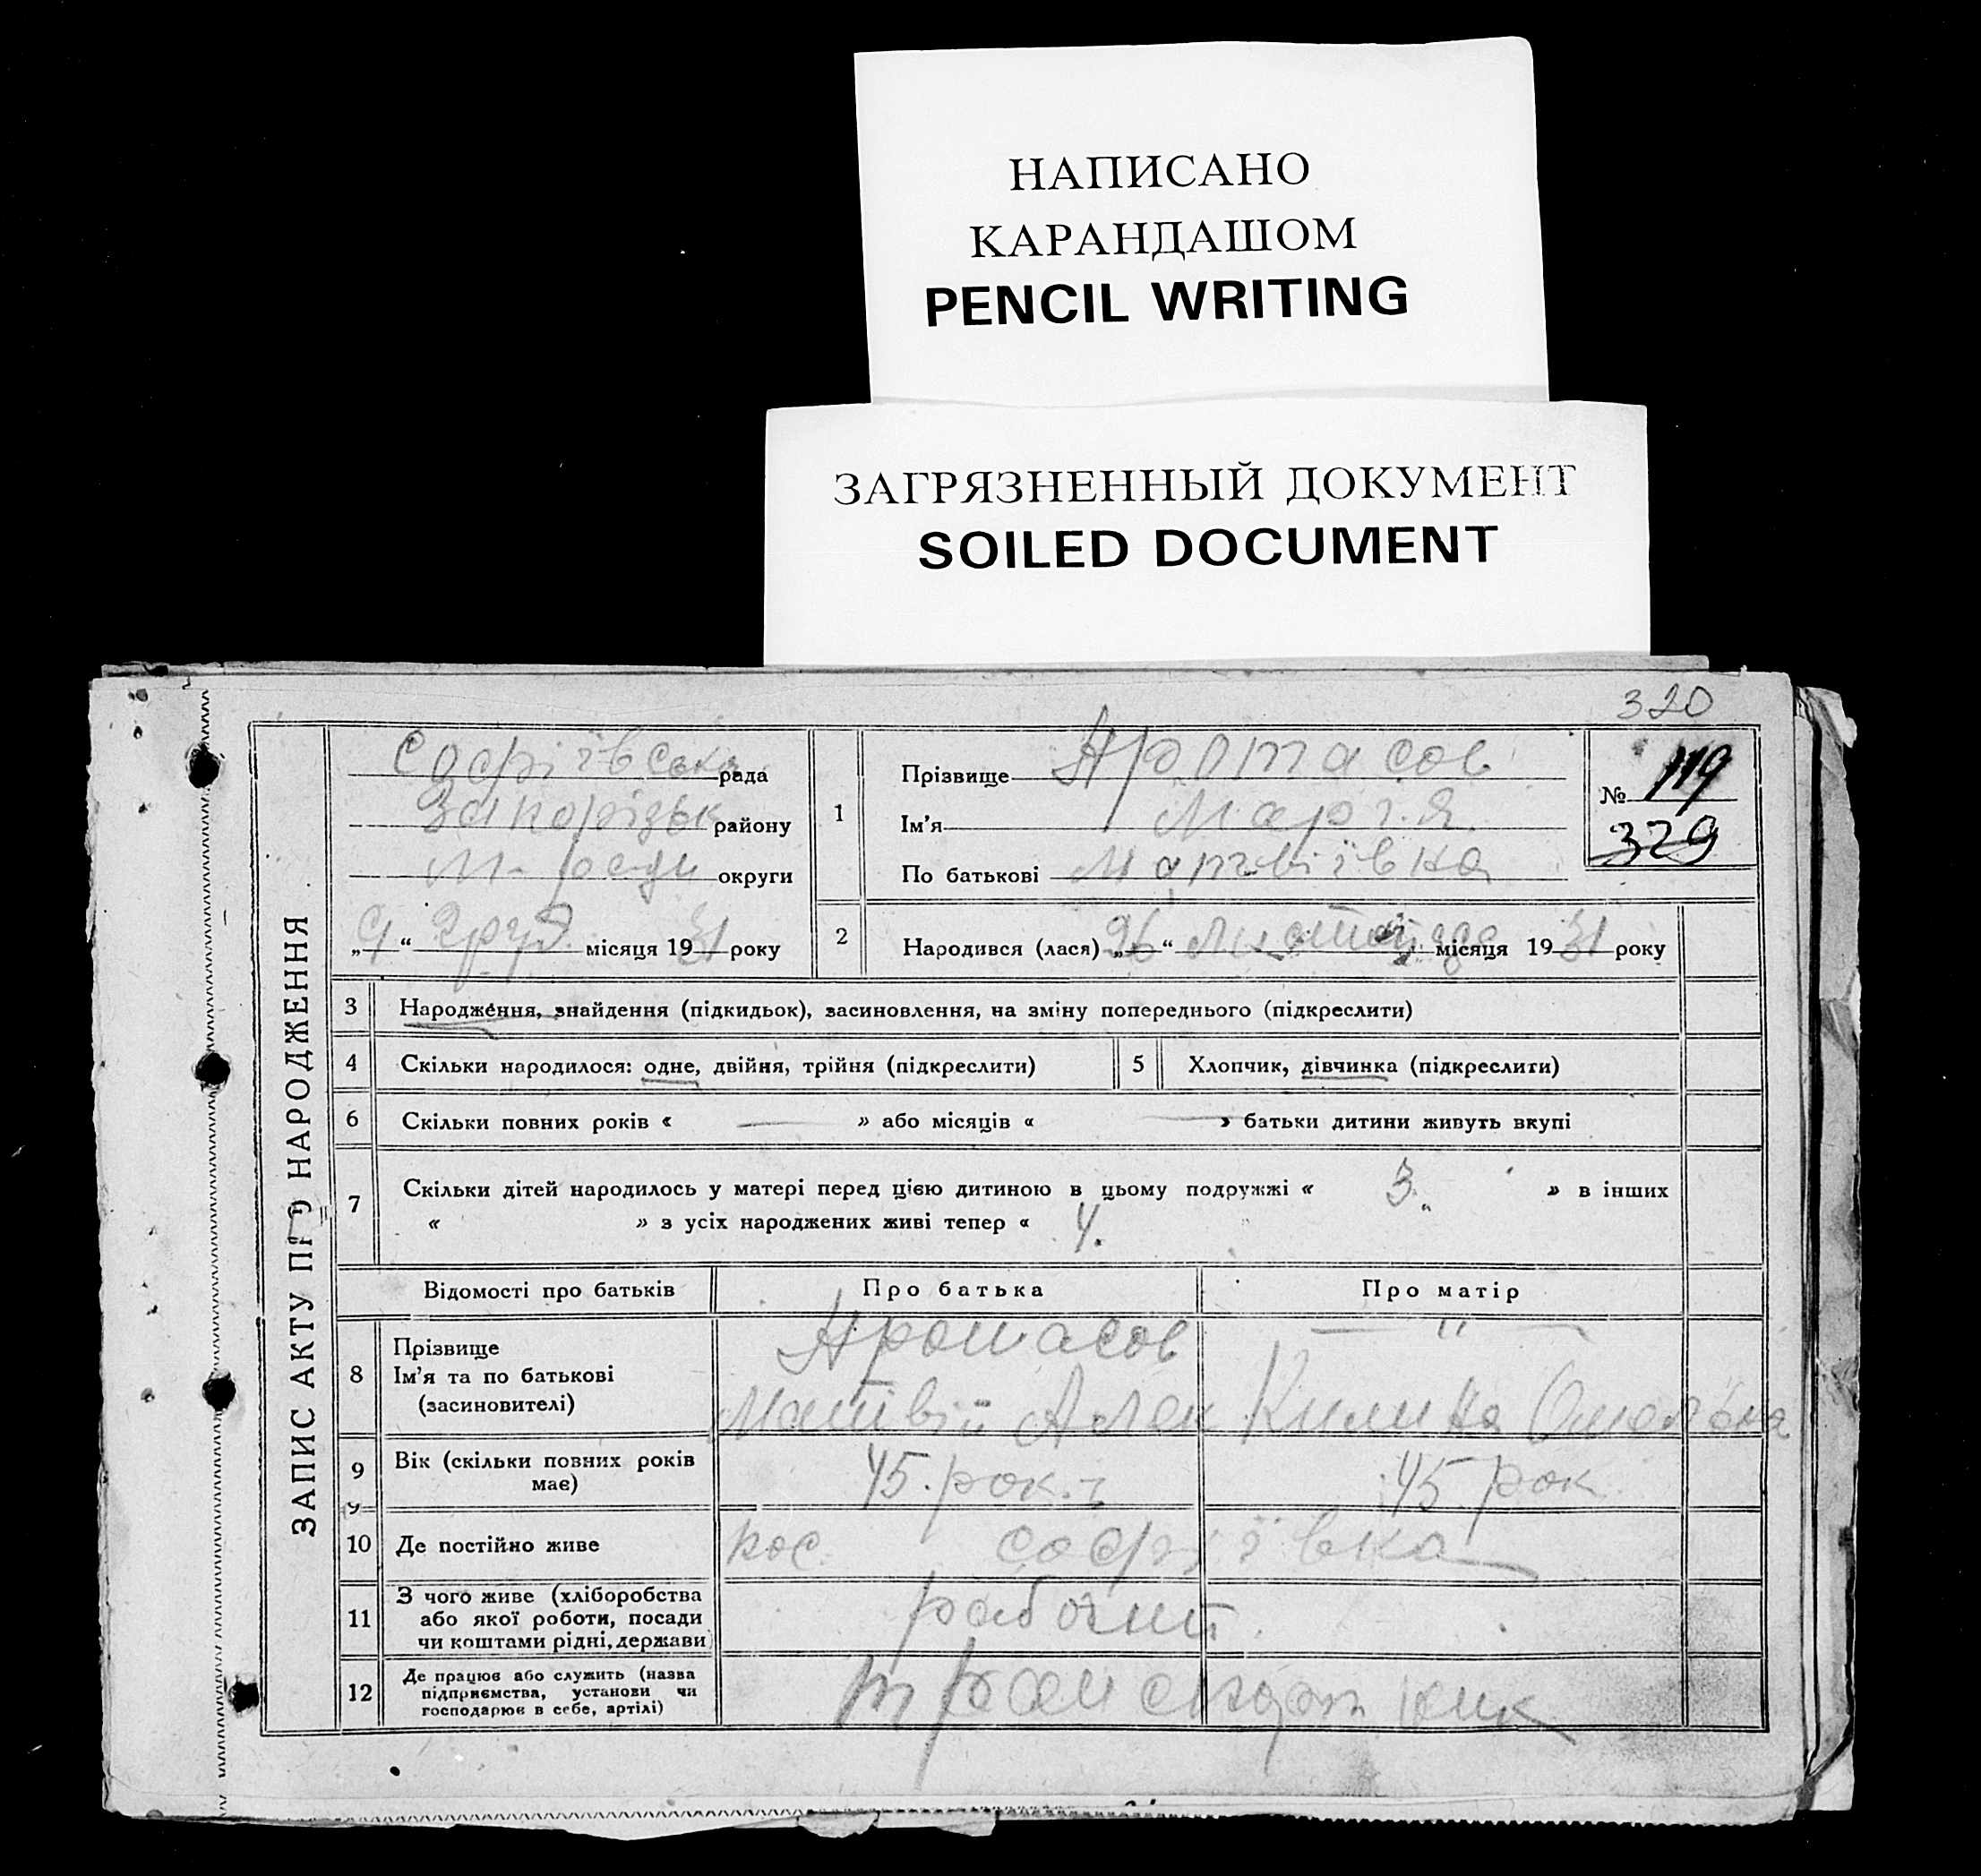 НАПИСАНО
КАРАНДАШОМ
PENCIL WRITING
ЗАГРЯЗНЕННЫЙ ДОКУМЕНТ
SOILED DOCUMENT
320
ЗАПИС АКТУ ПРО НАРОДЖЕННЯ
Софіївська рада
Запорізьк району
М-ради округи
„9“ груд. місяця 1931 року
1
Прізвище
Ім'я Марія
По батькові Матвіївна
№ 119
329
2 Народився (лася) „26“ Листопада місяця 1931 року
3 Народження, знайдення (підкидьок), засиновлення, на зміну попереднього (підкреслити)
4 Скільки народилося: одне, двійня, трійня (підкреслити)
5 Хлопчик, дівчинка (підкреслити)
6 Скільки повних років « — » або місяців « — » батьки дитини живуть вкупі
7 Скільки дітей народилось у матері перед цією дитиною в цьому подружжі « 3 » в інших
« » з усіх народжених живі тепер « 4.
Відомості про батьків Про батька Про матір
8 Прізвище
Ім'я та по батькові
(засиновителі)
— " —
Матвій Алек Килина Омельᐧяна
9 Вік (скільки повних років
має)
45 рок. 45 рок
10 Де постійно живе пос. Софіївка
11 З чого живе (хліборобства
або якої роботи, посади
чи коштами рідні, держави)
рабочий
12 Де працює або служить (назва
підприємства, установи чи
господарює в себе, артілі)